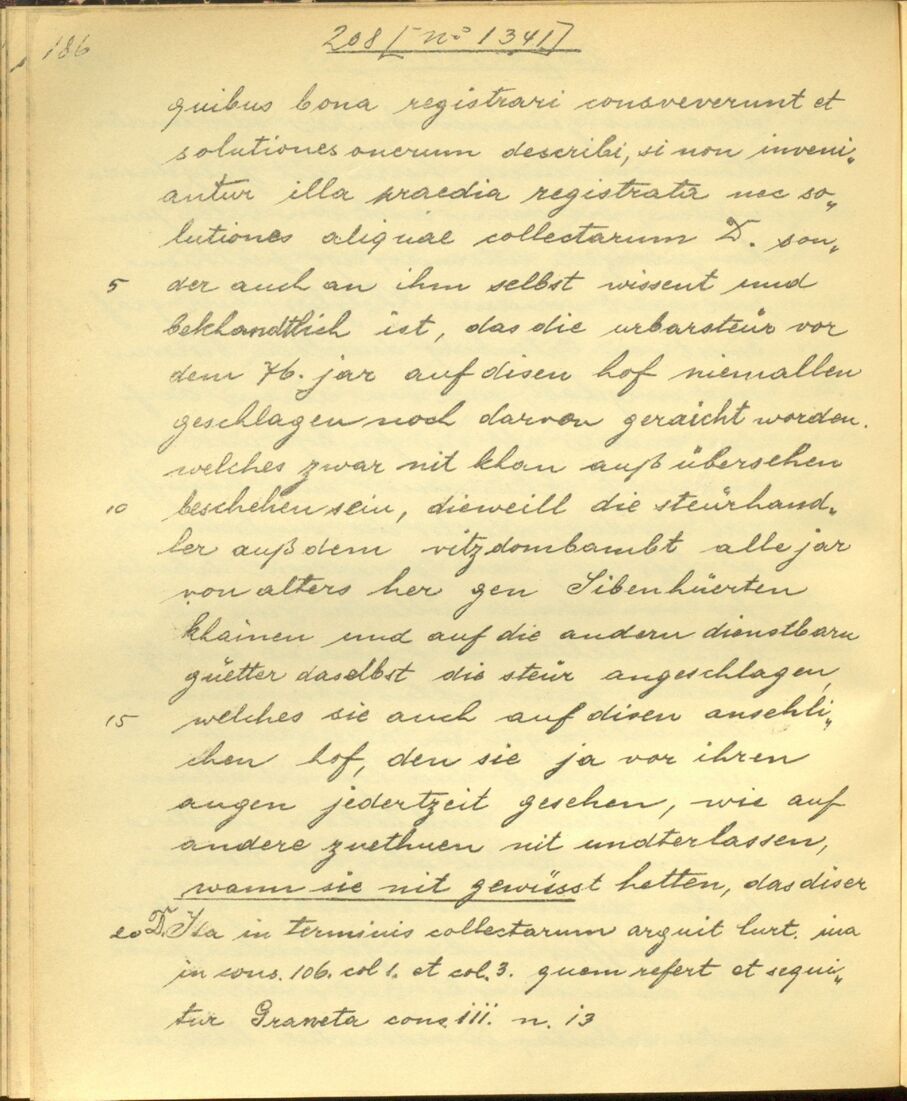 186
208 [nº 1341]
quibus bona registrari consveverunt et
solutiones onerum describi, si non inveni„
antur illa praedia registrata nec so„
lutiones aliquae collectarum D. son„
5 der auch an ihm selbst wissent und
bekhandtlich ist, das die urbarsteür vor
dem 76. jar auf disen hof niemallen
geschlagen noch darvon geraicht worden.
welches zwar nit khan auß übersehen
10 beschehen sein, dieweill die steürhand„
ler auß dem vitzdombambt alle jar
von alters her gen Sibenhüerten
khainen und auf die andern dienstbarn
güetter daselbst die steür angeschlagen,
15 welches sie auch auf disen ansehli„
chen hof, den sie ja vor ihren
augen jedertzeit gesehen, wie auf
andere zuethuen nit undterlassen,
wann sie nit gewüsst hetten, das diser
20 D. Ita in terminis collectarum arguit
in cons. 106. col 1. et col. 3. quem refert et sequi„
tur Graveta cons. iii. n. 13